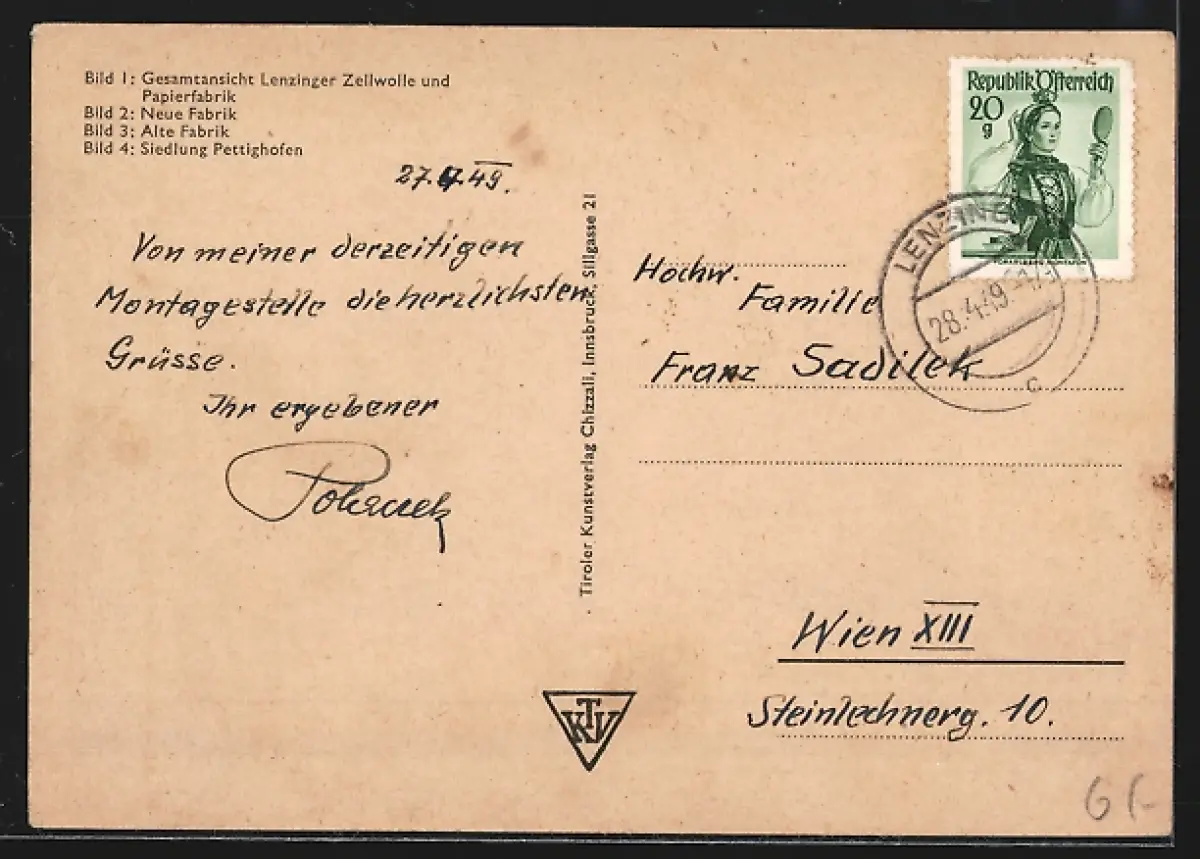 Bild 1: Gesamtansicht Lenzinger Zellwolle und
Papierfabrik
Bild 2: Neue Fabrik
Bild 3: Alte Fabrik
Bild 4: Siedlung Pettighofen
27.4.49.
Von meiner derzeitigen
Montagestelle die herzlichsten
Grüsse.
Ihr ergebener
Tiroler Kunstverlag Chizzali, Innsbruck, Sillgasse 21
KTV
Republik Österreich
20
g
LENZING
28.4.49
c
Hochw.
Familie
Franz Sadilek
Wien XIII
Steinlechnerg. 10.